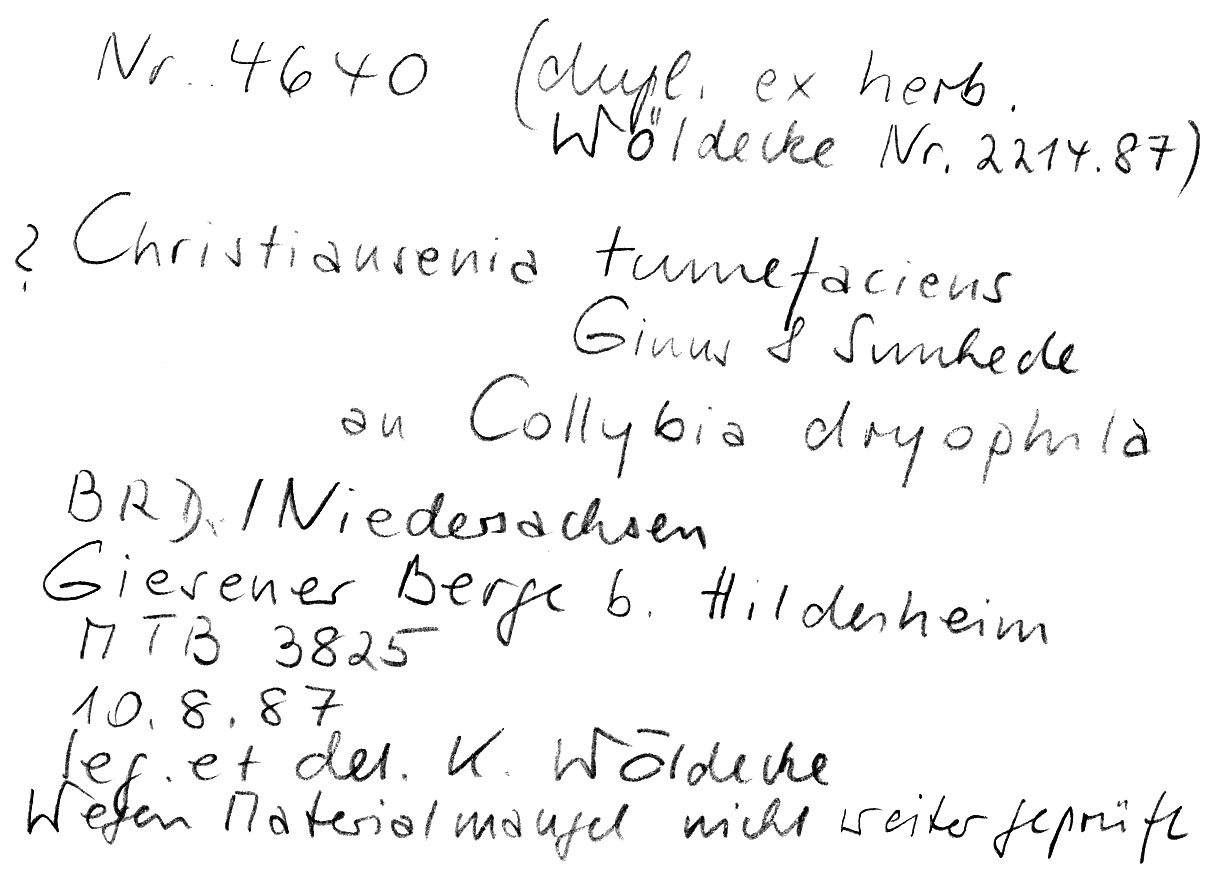 Nr. 4640 (dupl. ex herb.
Wöldecke Nr. 2214.87)
? Christiansenia tumefaciens
Ginns & Sunhede
an Collybia dryophila
BRD. / Niedersachsen
Giesener Berge b. Hildesheim
MTB 3825
10.8.87
leg. et det. K. Wöldecke
Wegen Materialmangel nicht weiter geprüft